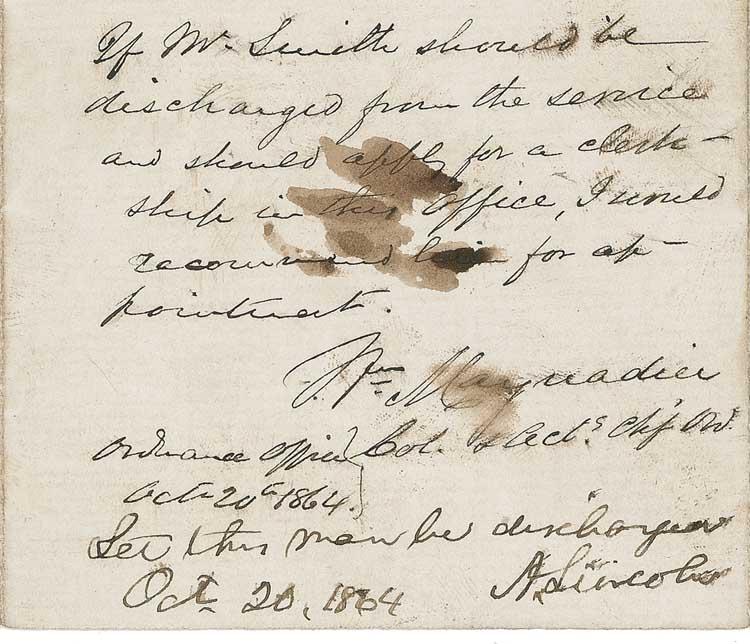 If Mr. Smith should be
discharged from the service
and should apply for a clerk-
ship in this office, I would
recommend him for ap-
pointment.
Wm. Maynadier
Ordnance Office Col. & Actg. Chf. Ord.
Oct. 20th 1864.
Let this man be discharged
Oct. 20, 1864 A. Lincoln